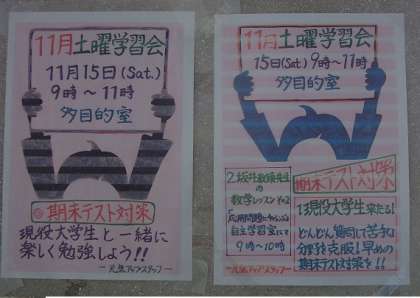 11月土曜学習会
11月15日(Sat.)
9時〜11時
多目的室
期末テスト対策
現役大学生と一緒に
楽しく勉強しよう!!
元気アップスタッフ
11月土曜学習会
15日(Sat.)9時〜11時
多目的室
期末テスト対策
1.現役大学生来たる!
どんどん質問して苦手な
分野を克服!早めの
期末テスト対策を!!
2.
の
数学レッスンその2
自主学習室にて
9時〜10時
元気アップスタッフ